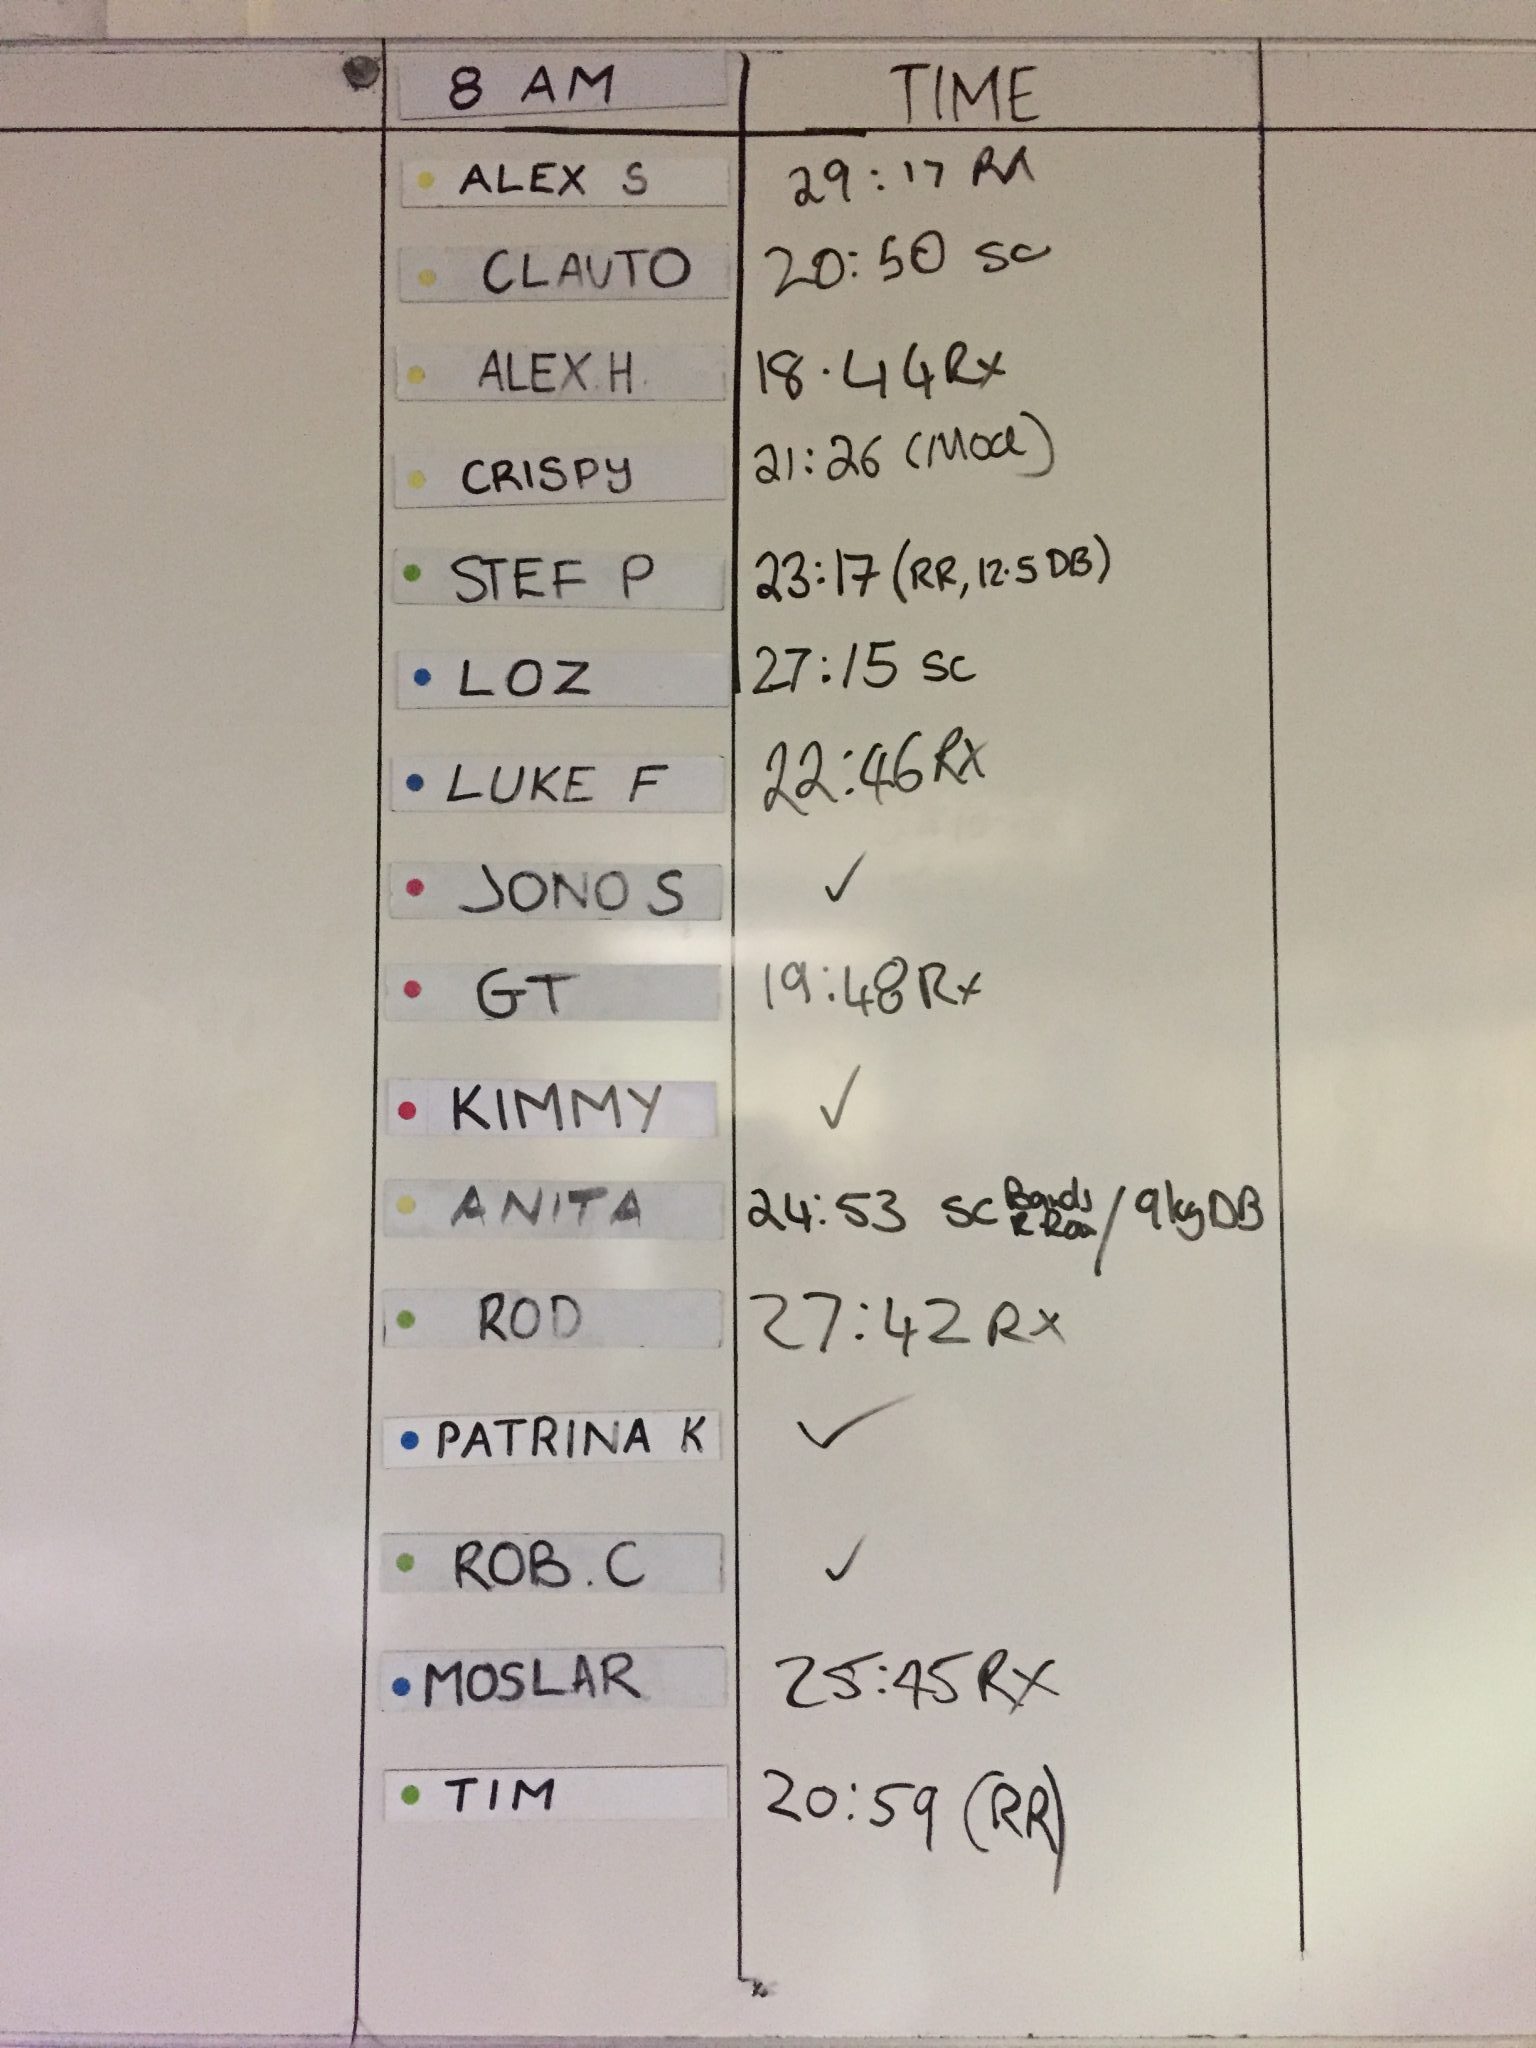 8 AM TIME
ALEX S 29:17 RX
CLAUTO 20:50 SC
ALEX.H. 18.44 Rx
CRISPY 21:26 (Mod)
STEF P 23:17 (RR, 12.5 DB)
LOZ 27:15 SC
LUKE F 22:46 RX
JONO S ✓
GT 19:48 Rx
KIMMY ✓
ANITA 24:53 SC Bands R Row / 9kg DB
ROD 27:42 Rx
PATRINA K ✓
ROB.C ✓
MOSLAR 25:45 RX
TIM 20:59 (RR)